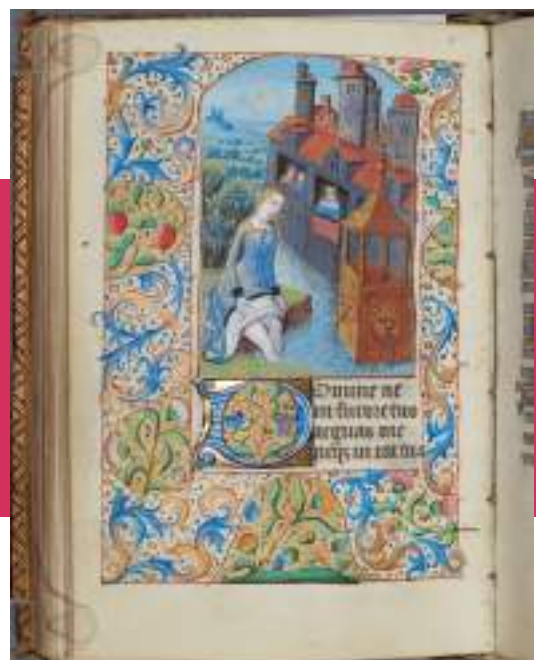 Domine ne
in furore tuo
arguas me
neqꝫ in ira tua